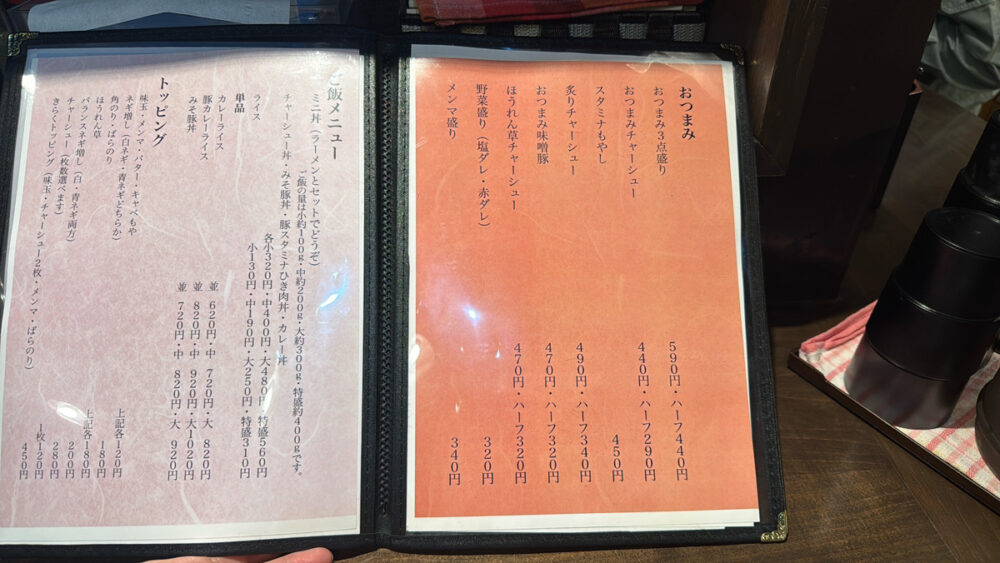 おつまみ
おつまみ３点盛り ５９０円・ハーフ４４０円
おつまみチャーシュー ４４０円・ハーフ２９０円
スタミナもやし ４５０円
炙りチャーシュー ４９０円・ハーフ３４０円
おつまみ味噌豚 ４７０円・ハーフ３２０円
ほうれん草チャーシュー ４７０円・ハーフ３２０円
野菜盛り（塩ダレ・赤ダレ） ３２０円
メンマ盛り ３４０円
ご飯メニュー
ミニ丼（ラーメンとセットでどうぞ）
ご飯の量は小約１００ｇ・中約２００ｇ・大約３００ｇ・特盛約４００ｇです。
チャーシュー丼・みそ豚丼・豚スタミナひき肉丼・カレー丼
各小３２０円・中４００円・大４８０円・特盛５６０円
ライス 小１３０円・中１９０円・大２５０円・特盛３１０円
単品
カレーライス 並 ６２０円・中 ７２０円・大 ８２０円
豚カレーライス 並 ８２０円・中 ９２０円・大１０２０円
みそ豚丼 並 ７２０円・中 ８２０円・大 ９２０円
トッピング
味玉・メンマ・バター・キャベもや
ネギ増し（白ネギ・青ネギどちらか） 上記各１２０円
角のり・ばらのり １８０円
ほうれん草 上記各１８０円
バランスネギ増し（白・青ネギ両方） ２００円
チャーシュー（枚数選べます） ２８０円
１枚１２０円
きらくトッピング（味玉・チャーシュー２枚・メンマ・ばらのり） ４５０円